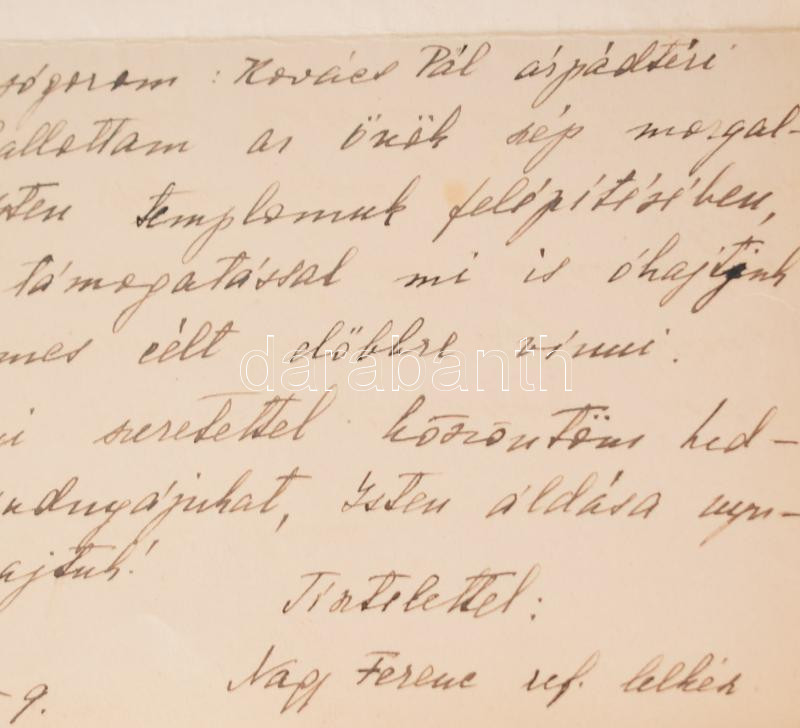 sógorom : Kovács Pál árpádtéri
hallottam az önök szép mozgal-
sten templomuk felépítésében,
támogatással mi is óhajtjuk
mes célt előbbre vinni.
darabanth
szeretettel köszöntöm ked-
Isten áldása nyu-
ajtuk!
Tisztelettel:
Nagy Ferenc ref. lelkész
- 9.